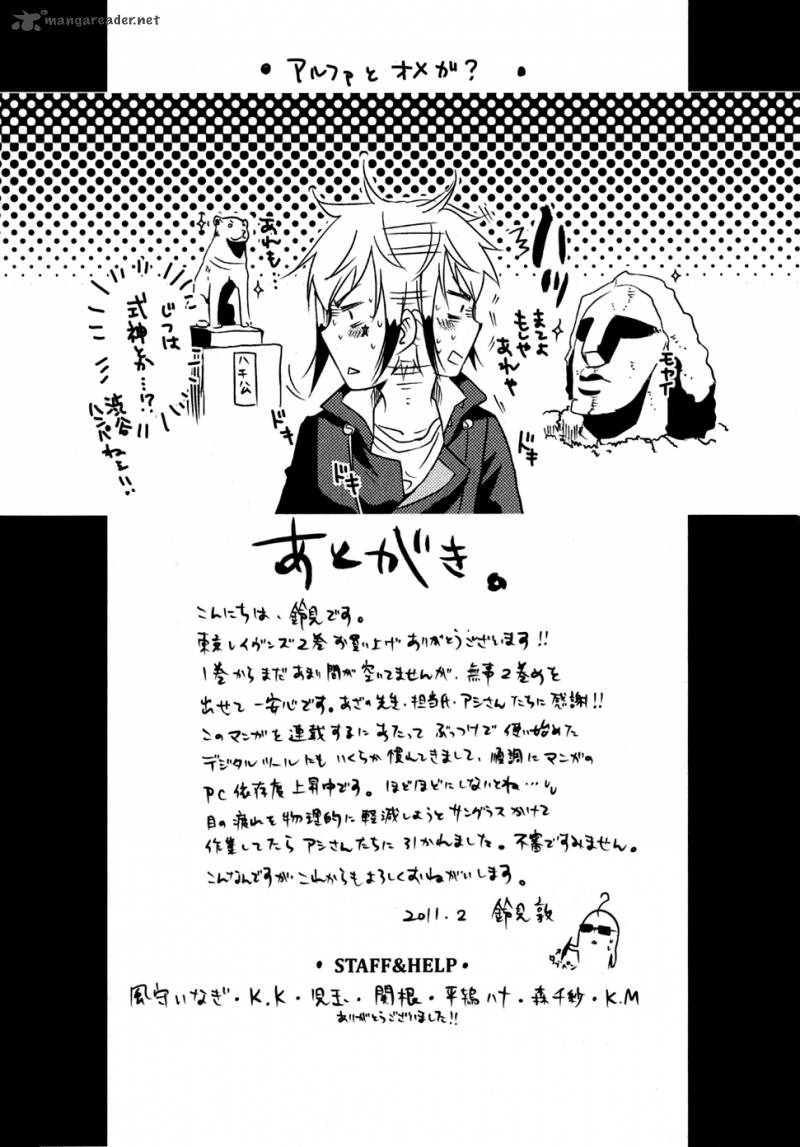 mangareader.net
・アルファとオメガ?・
ハッ
まてよ
もしや
あれや
モヤイ
あれも…
ハチ公
じつは
式神とか…!?
渋谷
ハンパねェ!!
ドキ
ドキ
ドキ
ドキ
あとがき。
こんにちは、鈴見です。
東京レイヴンズ2巻お買い上げありがとうございます!!
1巻からまだあまり間が空いてませんが、無事2巻めを
出せて一安心です。あざの先生・担当氏・アシさんたちに感謝!!
このマンガを連載するにあたってぶっつけで使い始めた
デジタルツールにもいくらか慣れてきまして、順調にマンガの
PC依存度上昇中です。ほどほどにしないとね…
目の疲れを物理的に軽減しようとサングラスかけて
作業してたらアシさんたちに引かれました。不審ですみません。
こんなんですが、これからもよろしくおねがいします。
2011.2 鈴見敦
タブペン
・STAFF&HELP・
風守いなぎ・K.K・児玉・関根・平鴇ハナ・森千紗・K.M
ありがとうございました!!